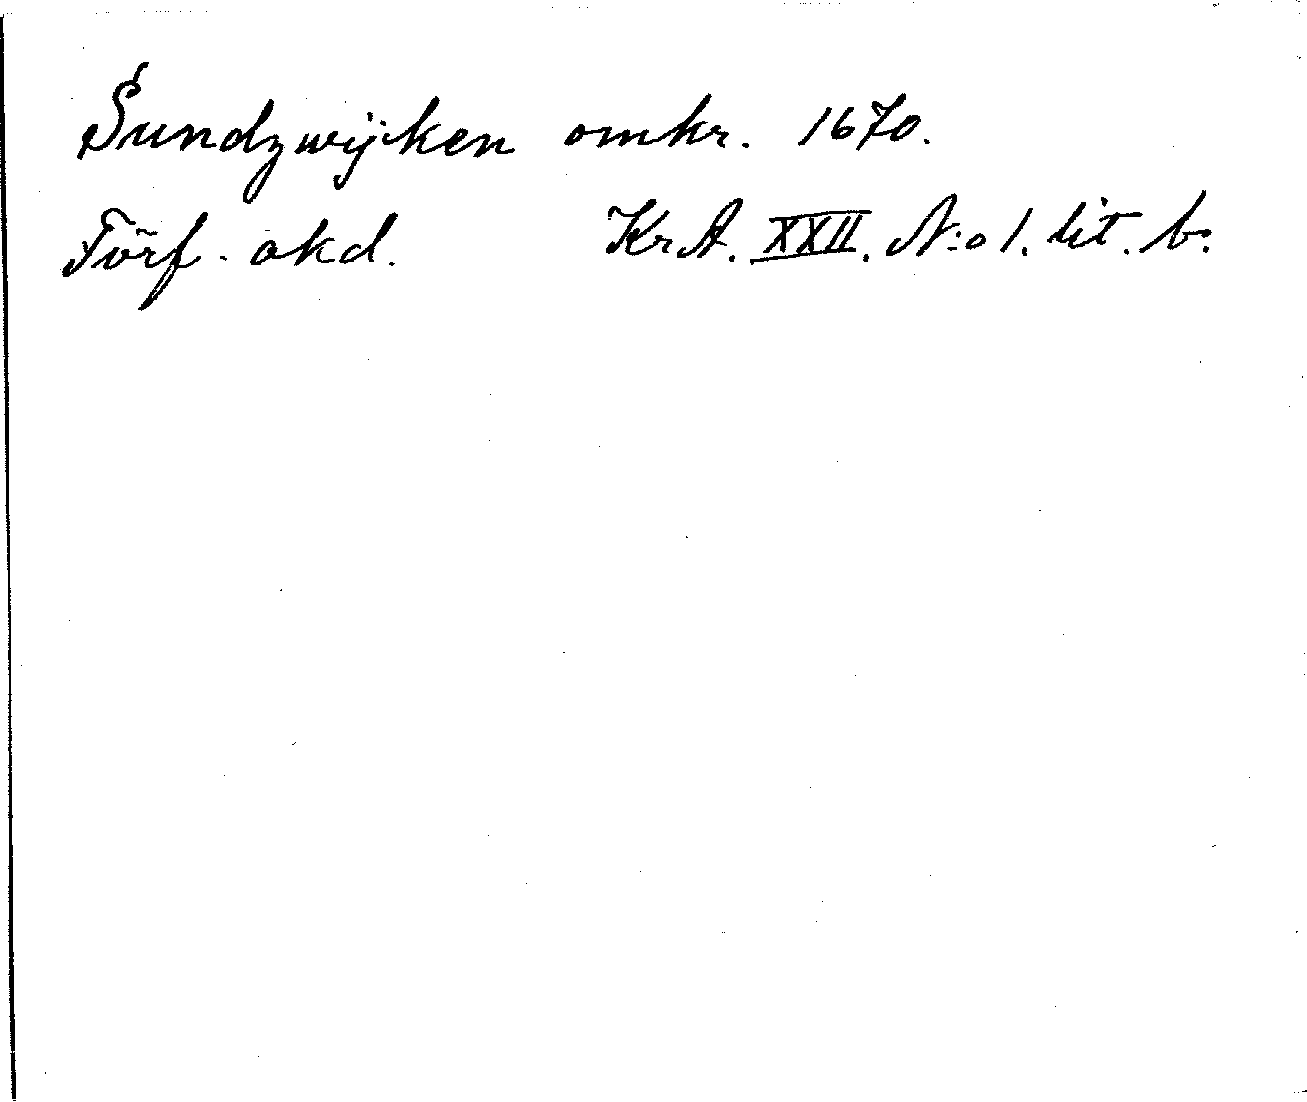 Sundzwijken omkr. 1670.
Förf. okd. KrA. XXII. N:o 1. lit. b.